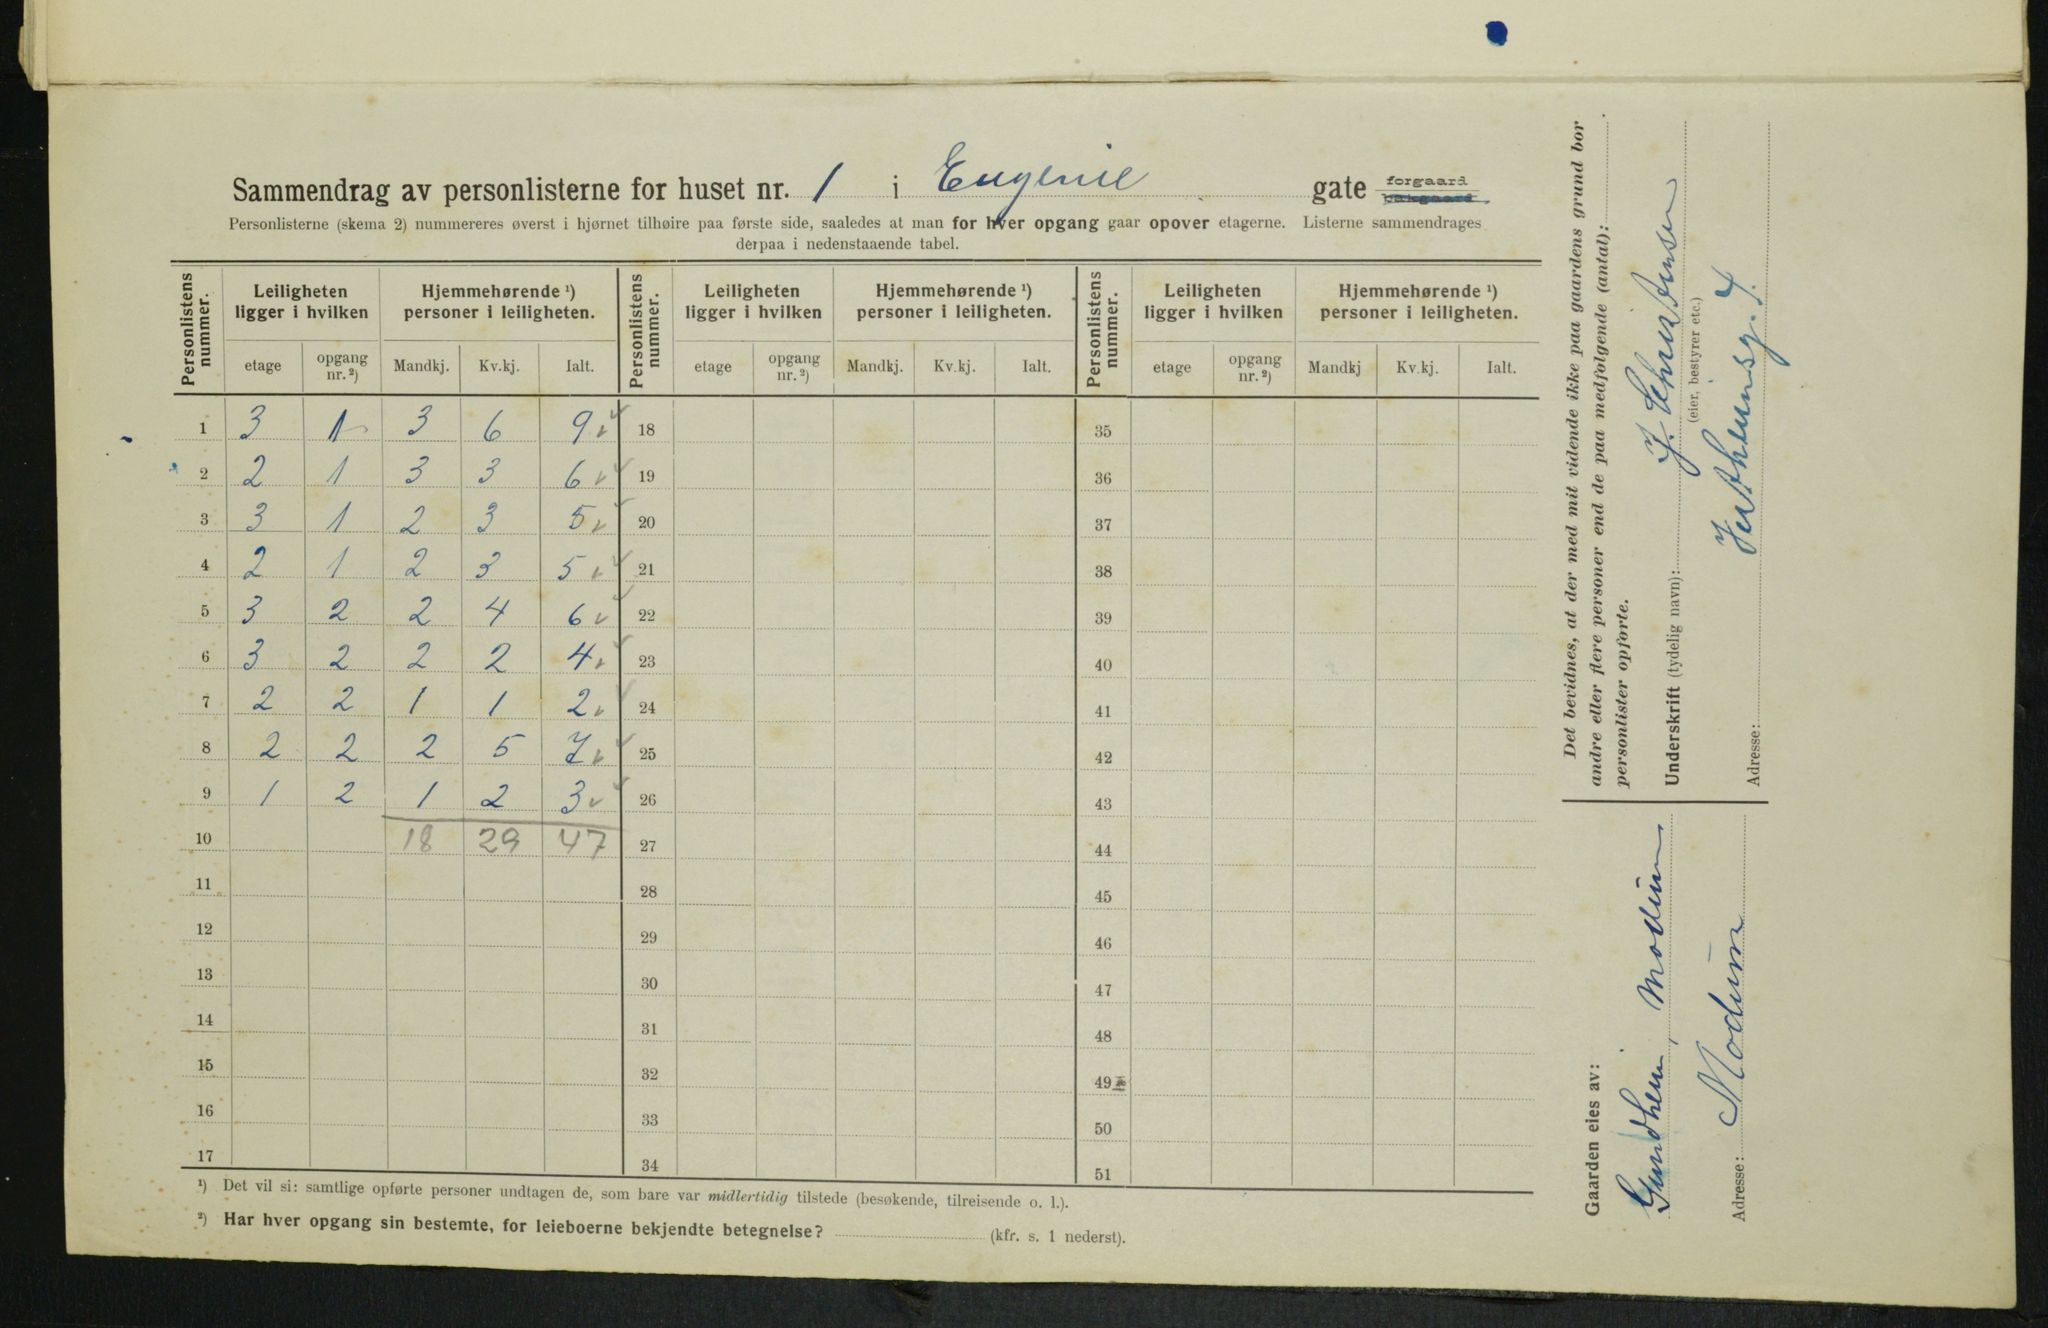 Sammendrag av personlisterne for huset nr. 1 i Eugenie gate forgaard bakgaard
Personlisterne (skema 2) nummereres øverst i hjørnet tilhøire paa første side, saaledes at man for hver opgang gaar opover etagerne. Listerne sammendrages
derpaa i nedenstaaende tabel.
Personlistens nummer. Leiligheten ligger i hvilken Hjemmehørende ¹) personer i leiligheten. Personlistens nummer. Leiligheten ligger i hvilken Hjemmehørende ¹) personer i leiligheten. Personlistens nummer. Leiligheten ligger i hvilken Hjemmehørende ¹) personer i leiligheten.
etage opgang nr. ²) Mandkj. Kv.kj. Ialt. etage opgang nr. ²) Mandkj. Kv.kj. Ialt. etage opgang nr. ²) Mandkj Kv.kj. Ialt.
1 3 1 3 6 9 18 35
2 2 1 3 3 6 19 36
3 3 1 2 3 5 20 37
4 2 1 2 3 5 21 38
5 3 2 2 4 6 22 39
6 3 2 2 2 4 23 40
7 2 2 1 1 2 24 41
8 2 2 2 5 7 25 42
9 1 2 1 2 3 26 43
10 18 29 47 27 44
11 28 45
12 29 46
13 30 47
14 31 48
15 32 49
16 33 50
17 34 51
¹) Det vil si: samtlige opførte personer undtagen de, som bare var midlertidig tilstede (besøkende, tilreisende o. l.).
²) Har hver opgang sin bestemte, for leieboerne bekjendte betegnelse? (kfr. s. 1 nederst).
Det bevidnes, at der med mit vidende ikke paa gaardens grund bor
andre eller flere personer end de paa medfølgende (antal):
personlister opførte.
Underskrift (tydelig navn): J. Christensen
(eier, bestyrer etc.)
Adresse:
Gaarden eies av:
Gundhem, Modum
Adresse: Modum